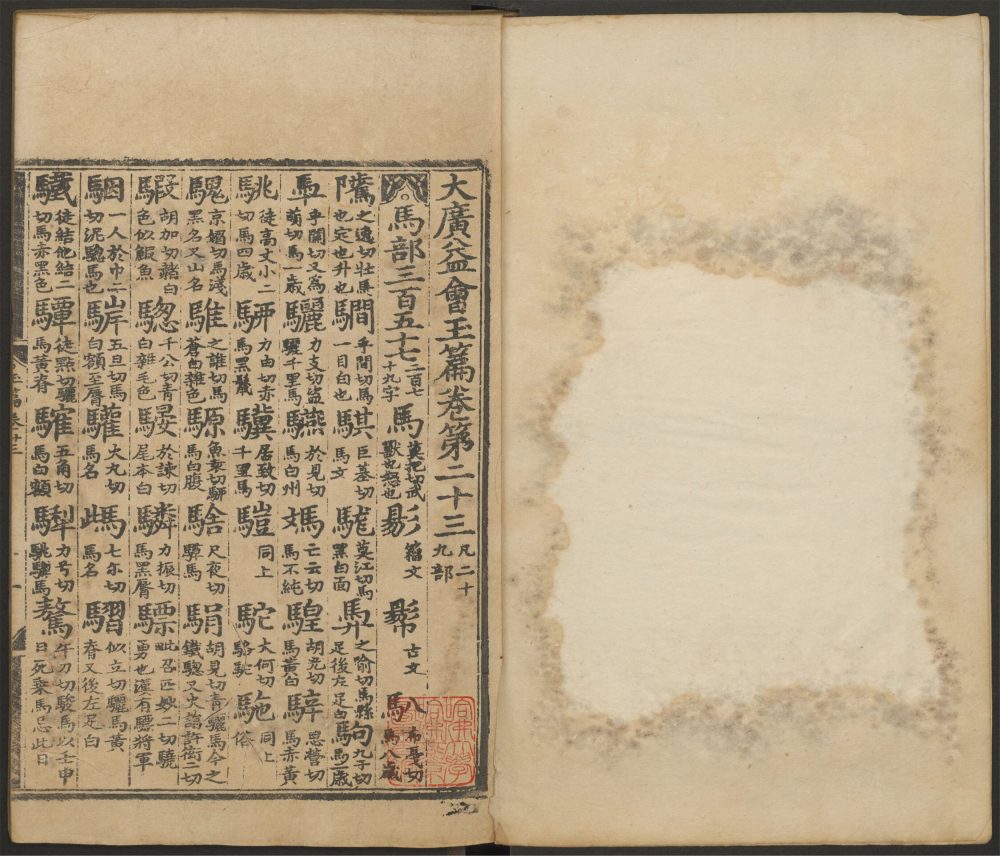 大廣益會玉篇卷第二十三 凡二十九部
馬部三百五十七 二百七十九字 馬 莫把切武獸也怒也 影 籀文 𢒠 古文 馬八 布戛切馬八歲
騭 之逸切壯馬也定也升也 騆 馬一目白也 騏 巨基切馬文 駹 莫江切馬黑白面 馵 之喻切馬縣足後左足白 駒 九于切馬二歲
馬 乎關切又爲萌切馬一歲 驪 力支切盜驪千里馬 驠 於見切馬白州 馼 亡云切馬不純 騜 胡光切馬黃白 騂 思營切馬赤黃
駣 徒高丈小二切馬四歲 騮 力由切赤馬黑鬣 驥 居致切千里馬 騹 同上 駝 大何切駱駝 駞 同上俗
騩 京媚切馬淺黑名又山名 騅 之誰切馬蒼白雜色 騵 魚袁切駵馬白腹 騇 尺夜切騲馬 駽 胡見切青驪馬今之鐵驄又火涓許衒二切
騢 胡加切赭白色似鰕魚 驄 千公切青白雜毛色 騴 於諫切馬尾本白 驎 力振切馬黑脣 驃 毗召匹妙二切驍勇也漢有驃將軍
駰 一人於巾二切泥驄馬也 馯 五旦切馬白額至脣 驩 火丸切馬名 馬此 七尒切馬名 騽 似立切驪馬黃脊又後左足白
驖 徒結他結二切馬赤黑色 驔 徒點切驪馬黃脊 騅 五角切馬白額 力兮切駣騱馬 驁 午刀切駿馬以壬申日死乘馬忌此日